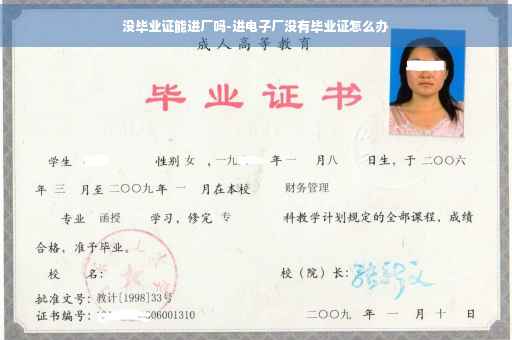 没毕业证能进厂吗-进电子厂没有毕业证怎么办
成人高等教育
毕业证书
学生 性别 女 ，一九 年一 月八 日生，于二〇〇六
年 三 月至二〇〇九年 一 月在本校 财务管理
专业 函授 学习，修完 专 科教学计划规定的全部课程，成绩
合格，准予毕业。
校 名： 校（院）长：
批准文号：教计[1998]33号
证书编号： 06001310 二〇〇九 年 一 月 十 日